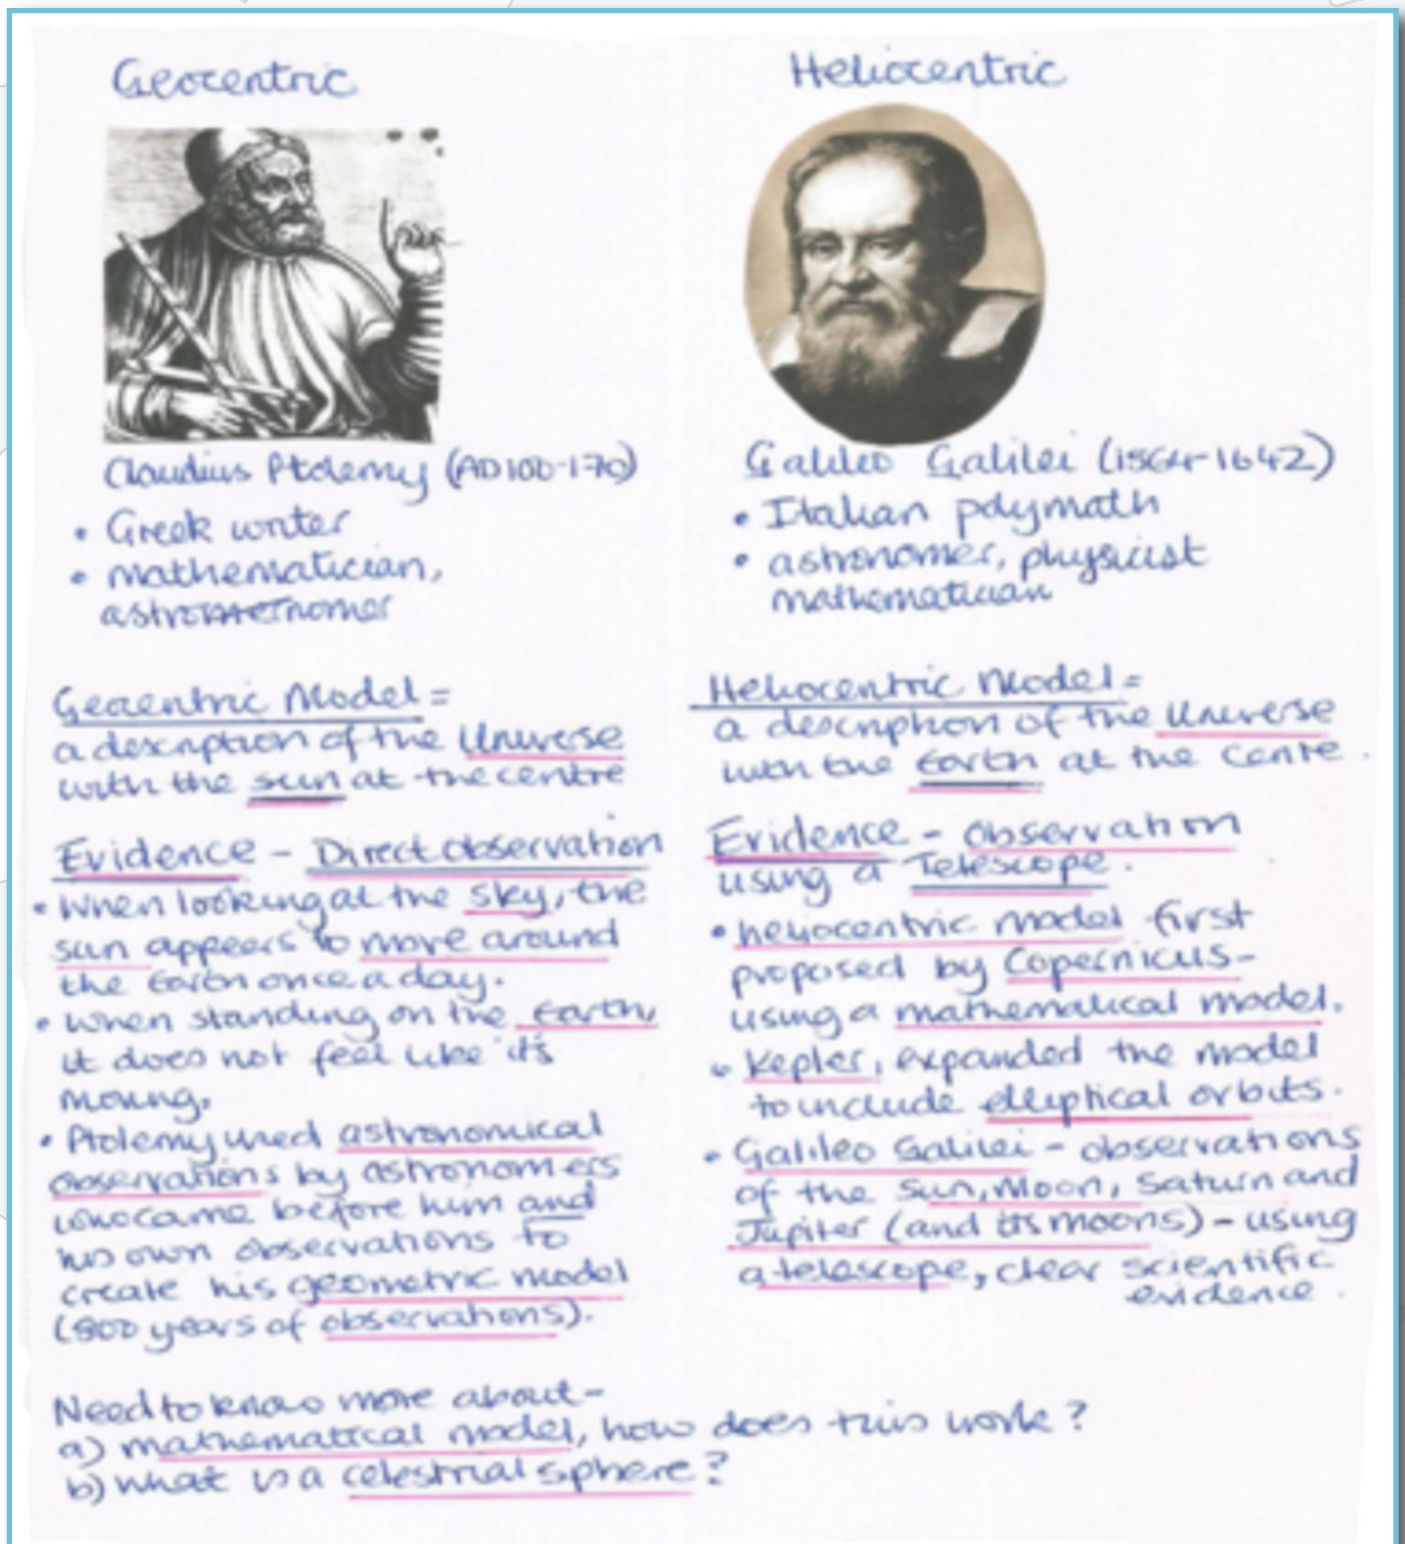 Geocentric
Claudius Ptolemy (AD100-170)
• Greek writer
• mathematician,
astronomer
Geocentric Model =
a description of the Universe
with the sun at the centre
Evidence - Direct observation
• When looking at the sky, the
sun appears to move around
the Earth once a day.
• When standing on the Earth,
it does not feel like it's
moving.
• Ptolemy used astronomical
observations by astronomers
who came before him and
his own observations to
create his geometric model
(800 years of observations).
Heliocentric
Galileo Galilei (1564-1642)
• Italian polymath
• astronomer, physicist
mathematician
Heliocentric Model =
a description of the Universe
with the Earth at the centre.
Evidence - observation
using a Telescope.
• heliocentric model first
proposed by Copernicus-
using a mathematical model.
• Kepler, expanded the model
to include elliptical orbits.
• Galileo Galilei - observations
of the Sun, Moon, Saturn and
Jupiter (and its moons) - using
a telescope, clear scientific
evidence.
Need to know more about-
a) mathematical model, how does this work?
b) what is a celestrial sphere?